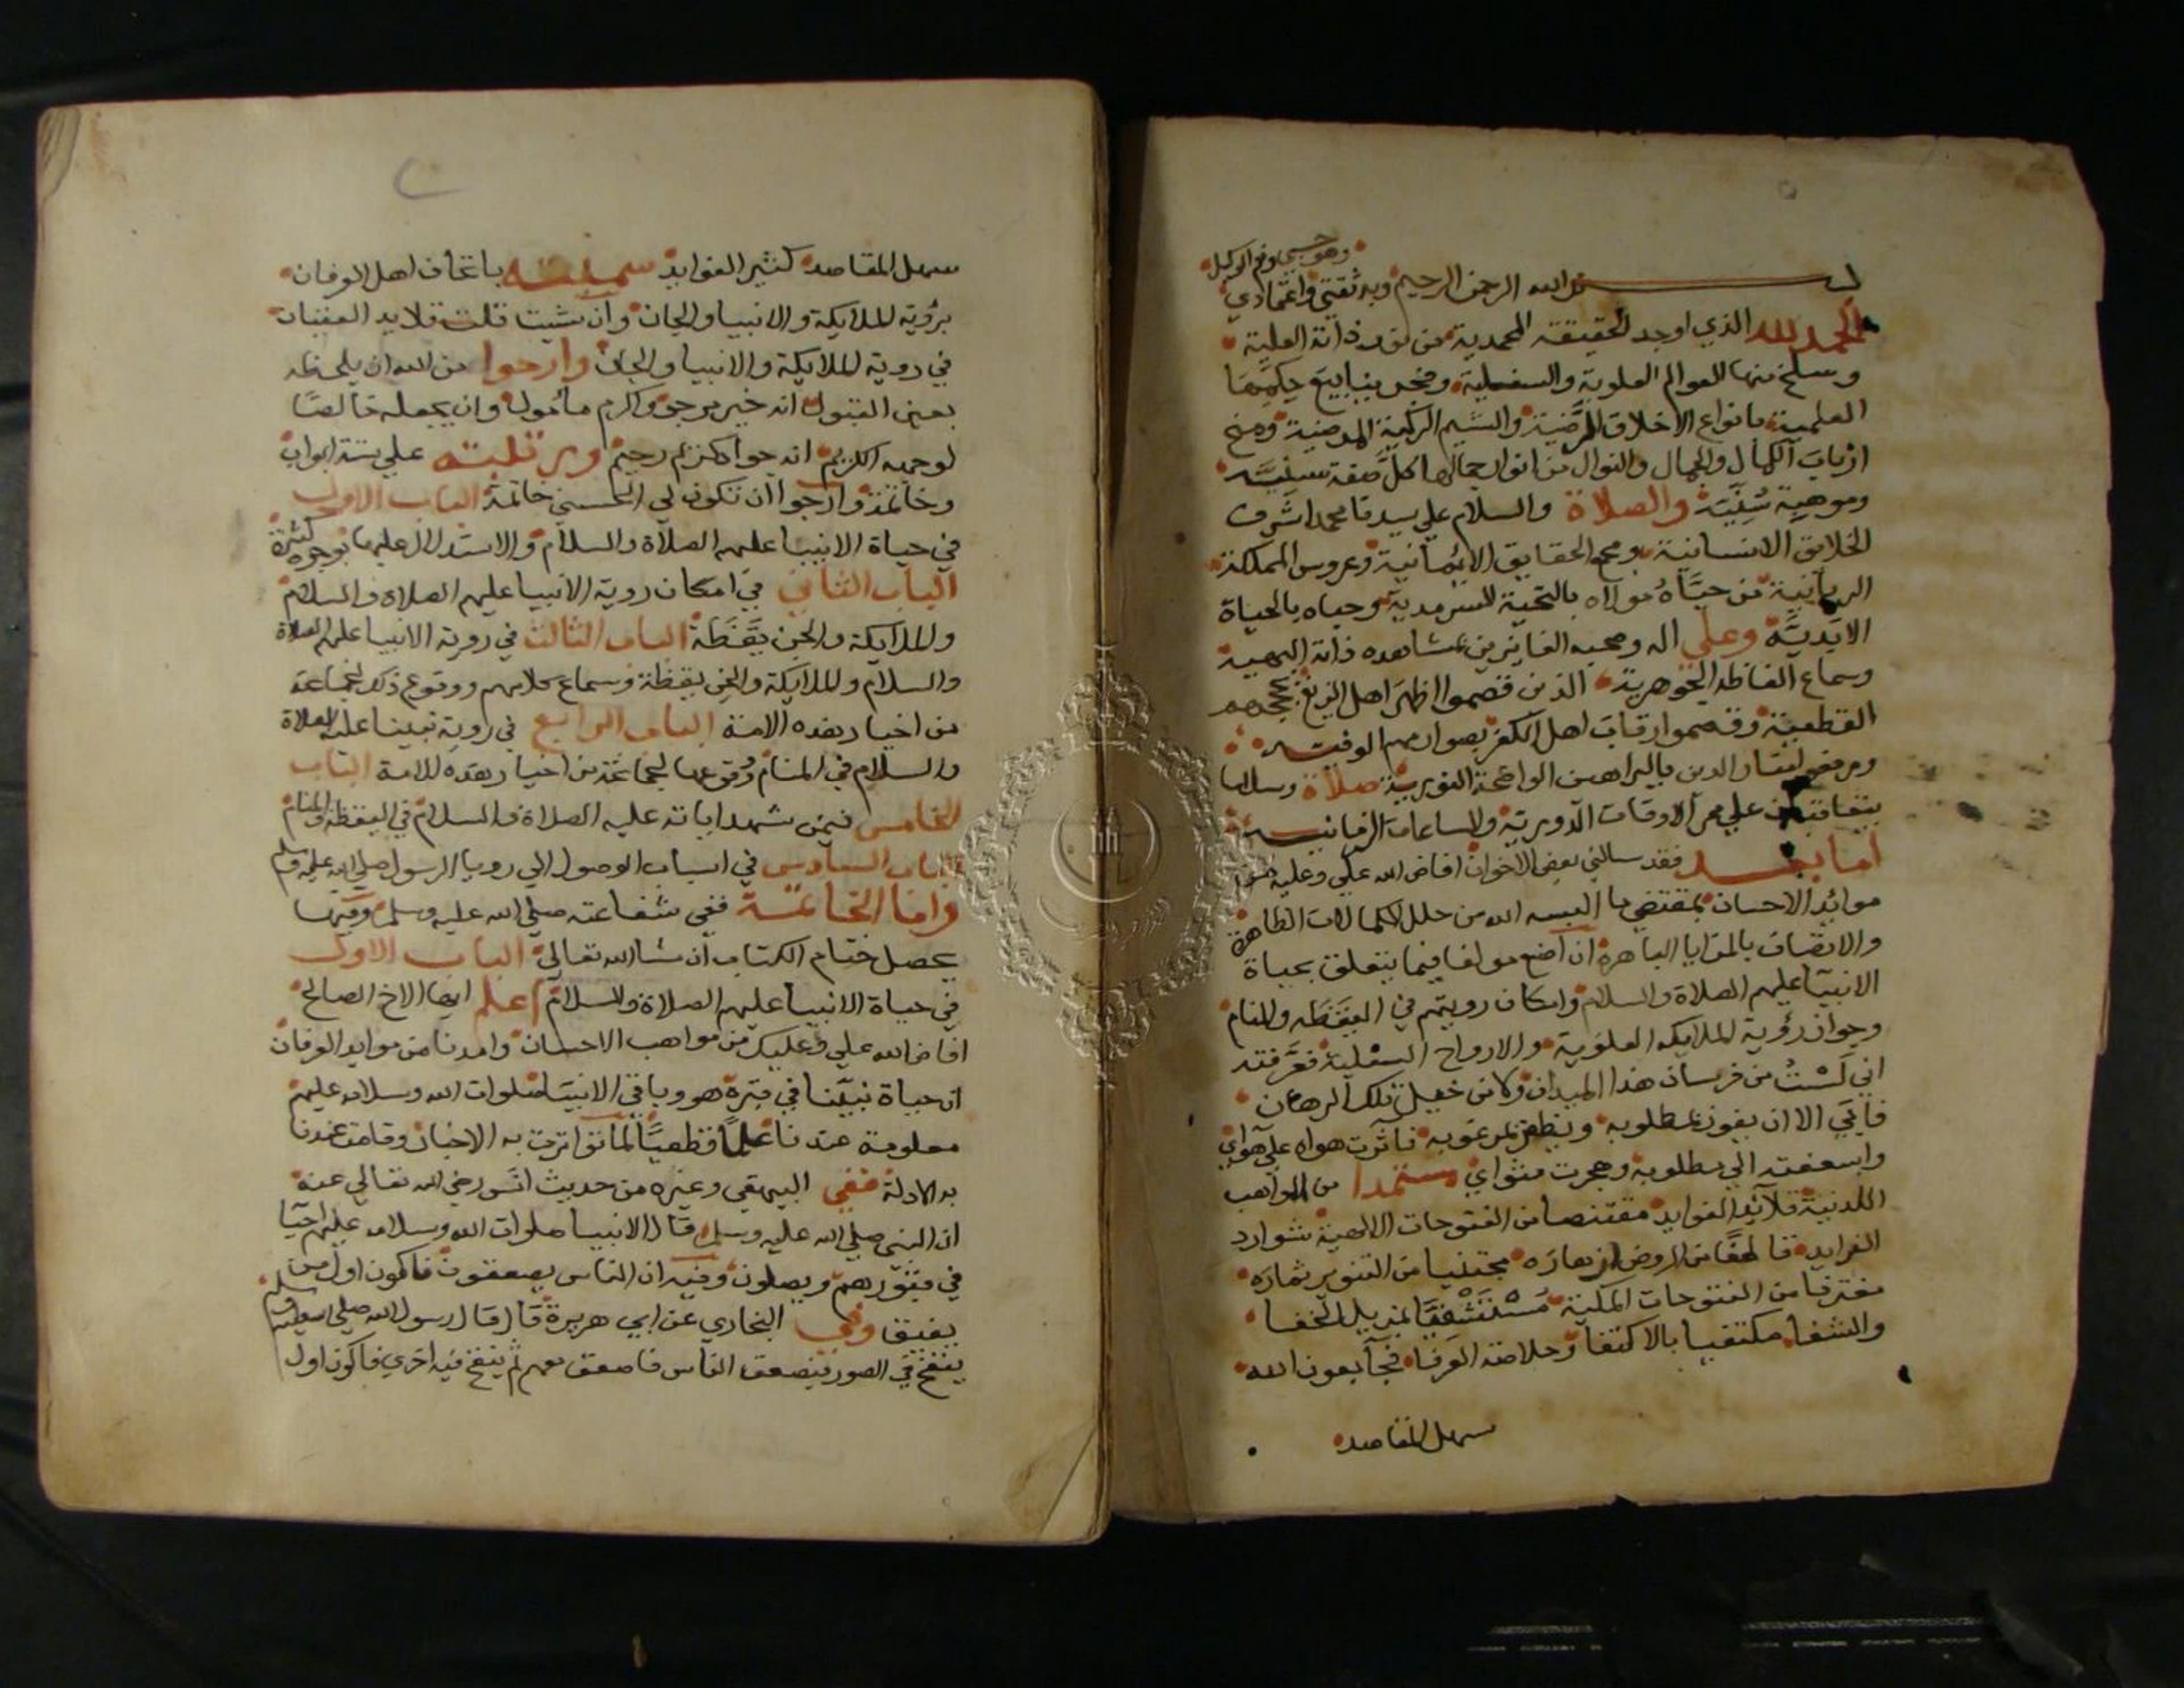 وهو حسبي ونعم الوكيل
بسم الله الرحمن الرحيم وبه ثقتي واعتمادي
الحمد لله الذي اوجد الحقيقة المحمدية من نور ذاته العلية
وسلخ منها العوالم العلوية والسفلية وفجر ينابيع حكمها
العلمية بانواع الاخلاق المرضية والشيم الزكية المرضية ومنح
ارباب الكمال والجمال والنوال من انوار جمالها كل صفة سنية
وموهبة سنية والصلاة والسلام علي سيدنا محمد اشرف
الخلايق الانسانية ومجمع الحقايق الايمانية وعروس المملكة
الربانية من حياه مولاه بالتحية السرمدية وحياه بالحياة
الابدية وعلي اله وصحبه الفايزين بمشاهدة ذاته البهية
وسماع الفاظه الجوهرية الذين قصموا اظهر اهل الزيغ بحججهم
القطعية وقصموا رقاب اهل الكفر بصوارمهم الوفية
ورفع لمنار الدين بالبراهين الواضحة النورية صلاة وسلاما
يتعاقبان علي ممر الاوقات الدورية والساعات الزمانية
اما بعد فقد سالني بعض الاخوان افاض الله علي وعليه من
موائد الاحسان بمقتضي ما البسه الله من حلل الكمالات الظاهرة
والاتصاف بالمزايا الباهرة ان اضع مولفا فيما يتعلق بحياة
الانبيا عليهم الصلاة والسلام وامكان رويتهم في اليقظة والمنام
وجواز رؤية الملايكة العلوية والارواح السفلية فعرفته
اني لست من فرسان هذا الميدان ولا من خيل تلك الرهان
فابي الا ان يفوز بمطلوبه ويظفر بمرغوبه فاثرت هواه علي هواي
واسعفته الي مطلوبه وهجرت مثواي مستمدا من المواهب
اللدنية قلائد الفوايد مقتنصا من الفتوحات الالهية شوارد
الفرايد قاطفا من الروض ازهاره مجتنيا من التنوير ثماره
مغترفا من الفتوحات المكية مستشفيا بمزيل الخفا
والشفا مكتفيا بالاكتفا وخلاصة الوفا فجا بعون الله
سهل المقاصد
سهل المقاصد كثير الفوايد سميته باتحاف اهل العرفان
برؤية الملايكة والانبيا والجان وان شيت قلت قلايد العقيان
في روية الملايكة والانبيا والجان وارجوا من الله ان يلحظه
بعين القبول انه خير مرجو واكرم مامول وان يجعله خالصا
لوجهه الكريم انه جواد كريم رحيم ورتبته علي ستة ابواب
وخاتمة وارجوا ان تكون لي الحسني خاتمة الباب الاول
في حياة الانبيا عليهم الصلاة والسلام والاستدلال عليها بوجوه كثيرة
الباب الثاني في امكان روية الانبيا عليهم الصلاة والسلام
والملايكة والجن يقظة الباب الثالث في روية الانبيا عليهم الصلاة
والسلام والملايكة والجن يقظة وسماع كلامهم ووقوع ذلك لجماعة
من اخيار هذه الامة الباب الرابع في روية نبينا عليه الصلاة
والسلام في المنام ووقوعها لجماعة من اخيار هذه الامة الباب
الخامس فيمن شهد اياته عليه الصلاة والسلام في اليقظة والمنام
الباب السادس في اسباب الوصول الي رويا الرسول صلي الله عليه وسلم
واما الخاتمة ففي شفاعته صلي الله عليه وسلم وفيها
يحصل ختام الكتاب ان شا الله تعالي الباب الاول
في حياة الانبيا عليهم الصلاة والسلام اعلم ايها الاخ الصالح
افاض الله علي وعليك من مواهب الاحسان وامدنا من موايد العرفان
ان حياة نبينا في قبره هو وباقي الانبيا صلوات الله وسلامه عليهم
معلومة عندنا علما قطعيا لما تواترت به الاخبار وقامت عندنا
به الادلة ففي البيهقي وغيره من حديث انس رضي الله تعالي عنه
ان النبي صلي الله عليه وسلم قال الانبيا صلوات الله وسلامه عليهم احيا
في قبورهم ويصلون وفيه ان الناس يصعقون فاكون اول من
يفيق وفي البخاري عن ابي هريرة قال قال رسول الله صلي الله عليه وسلم
ينفخ في الصور فيصعق الناس فاصعق معهم ثم ينفخ فيه اخري فاكون اول